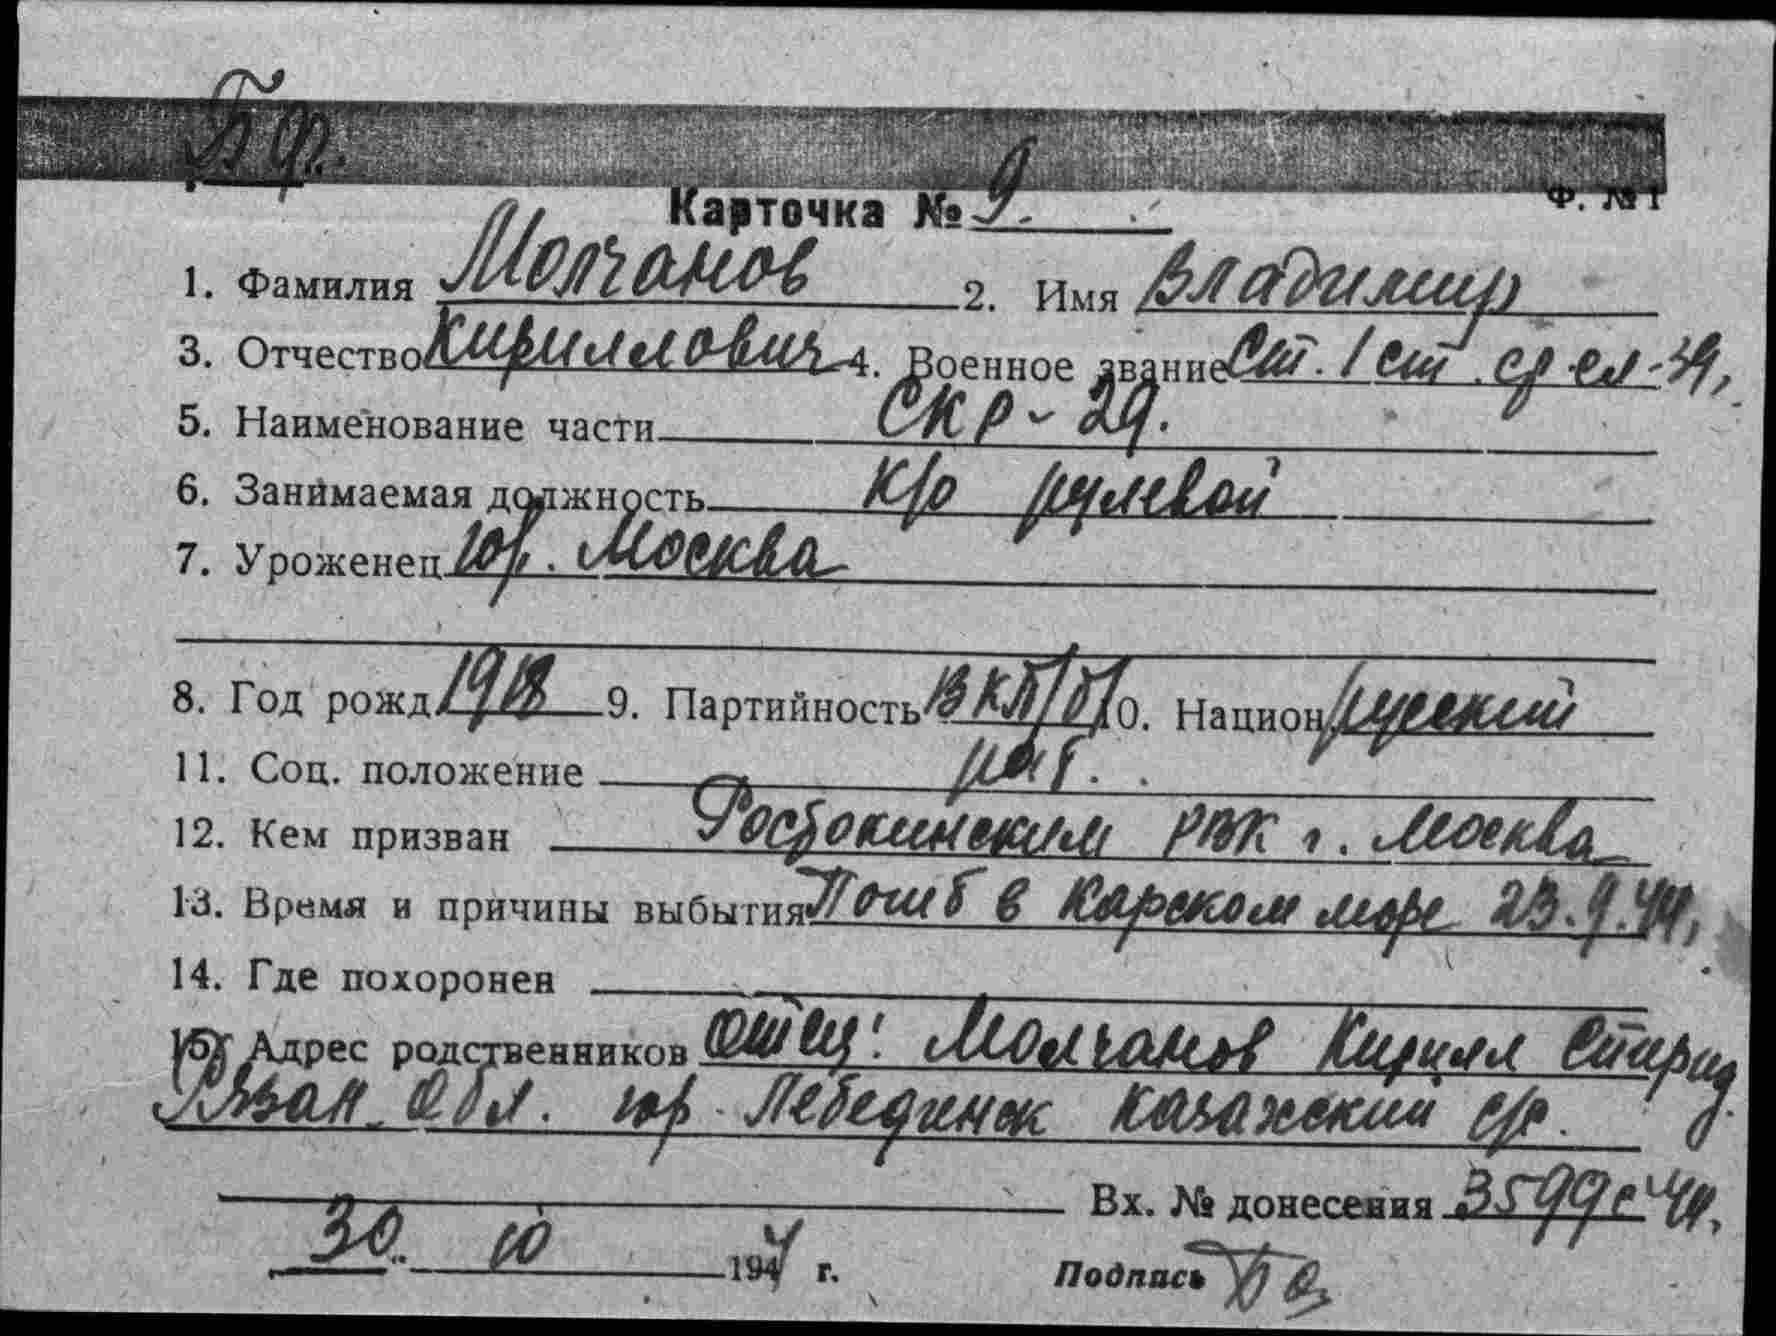 Бф.
Карточка № 9.
Ф. № 1
1. Фамилия Молчанов 2. Имя Владимир
3. Отчество Кириллович 4. Военное звание Ст. 1 ст.
5. Наименование части СКР-29.
6. Занимаемая должность к/о рулевой
7. Уроженец гор. Москва
8. Год рожд 1918 9. Партийность ВКП/б/ 10. Национ русский
11. Соц. положение раб.
12. Кем призван Ростокинским РВК г. Москва
13. Время и причины выбытия Погиб в Карском море 23.9.44,
14. Где похоронен
15. Адрес родственников Отец: Молчанов Кирилл Спирид.
Рязан. обл. гор. Лебедянск Казахский с/с.
Вх. № донесения 3599с 44.
30. 10 1944 г. Подпись